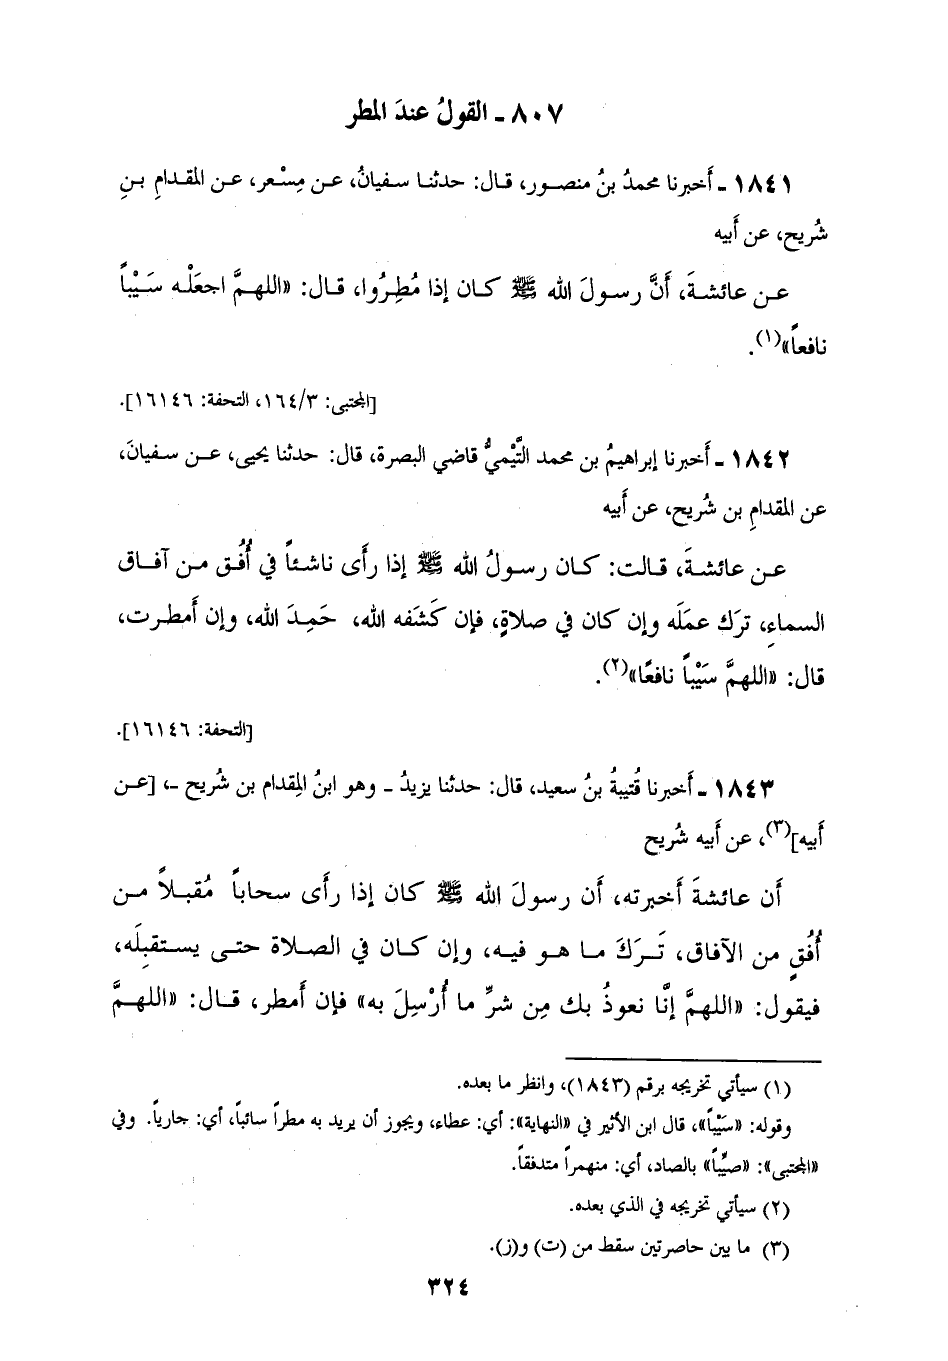 ٨٠٧ ـ القولُ عندَ المطر
١٨٤١ ـ أَخبرنا محمدُ بنُ منصور، قال: حدثنا سفيانُ، عن مِسْعر، عن المقدامِ بنِ
شُريح، عن أَبيه
عن عائشةَ، أَنَّ رسولَ الله ﷺ كان إذا مُطِرُوا، قال: «اللهمَّ اجعَلْه سَيْباً
نافعاً»(١).
[المجتبى: ١٦٤/٣، التحفة: ١٦١٤٦].
١٨٤٢ ـ أَخبرنا إبراهيمُ بن محمد التَّيْميُّ قاضي البصرة، قال: حدثنا يحيى، عن سفيانَ،
عن المقدامِ بن شُريح، عن أَبيه
عن عائشةَ، قالت: كان رسولُ الله ﷺ إذا رأَى ناشئاً في أُفُق من آفاق
السماءِ، تركَ عملَه وإن كان في صلاةٍ، فإن كَشَفه الله، حَمِدَ الله، وإن أَمطرت،
قال: «اللهمَّ سَيْباً نافعًا»(٢).
[التحفة: ١٦١٤٦].
١٨٤٣ ـ أَخبرنا قُتيبةُ بنُ سعيد، قال: حدثنا يزيدُ ـ وهو ابنُ المِقدام بن شُريح ـ، [عن
أَبيه](٣)، عن أَبيه شُريح
أَن عائشةَ أَخبرته، أَن رسولَ الله ﷺ كان إذا رأَى سحاباً مُقبلاً من
أُفُقٍ من الآفاق، تَركَ ما هو فيه، وإن كان في الصلاة حتى يستقبِلَه،
فيقول: «اللهمَّ إنَّا نعوذُ بك مِن شرِّ ما أُرْسِلَ به» فإن أَمطر، قال: «اللهمَّ
(١) سيأتي تخريجه برقم (١٨٤٣)، وانظر ما بعده.
وقوله: «سَيْباً»، قال ابن الأثير في «النهاية»: أي: عطاء، ويجوز أن يريد به مطراً سائباً، أي: جارياً. وفي
«المجتبى»: «صيِّباً» بالصاد، أي: منهمراً متدفقاً.
(٢) سيأتي تخريجه في الذي بعده.
(٣) ما بين حاصرتين سقط من (ت) و(ز).
٣٢٤